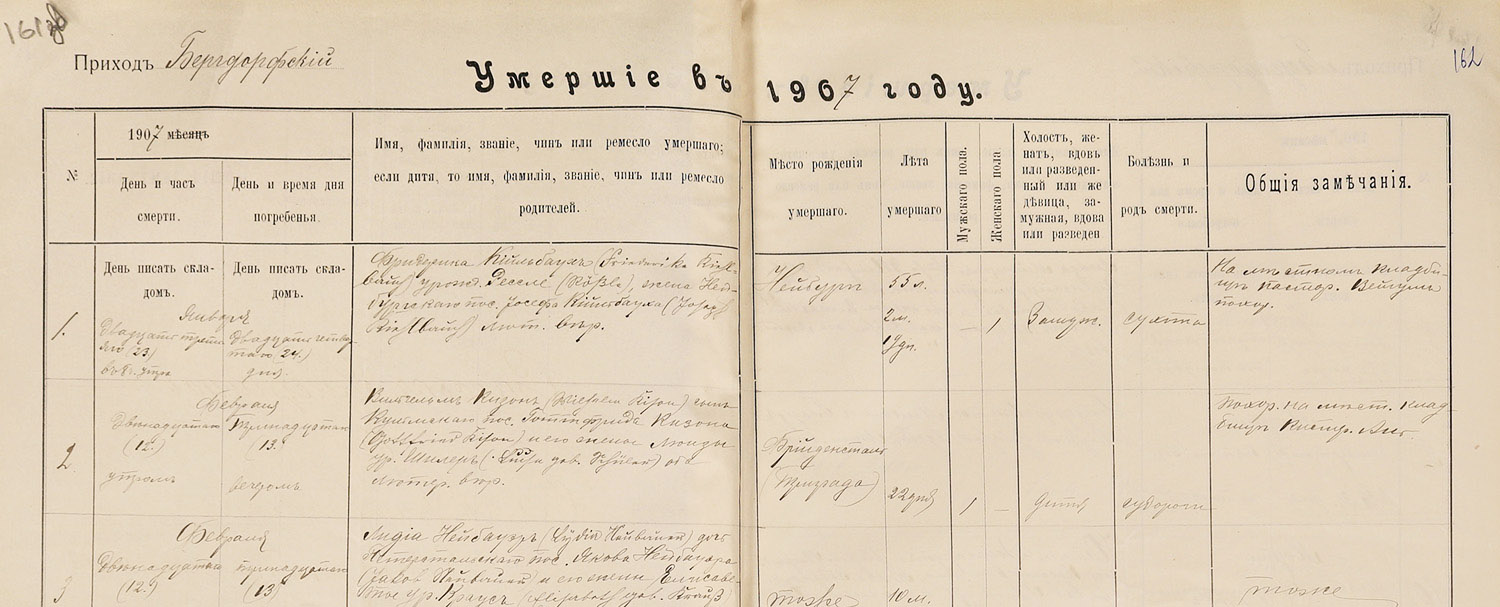 161
162
Приходъ Бергдорфскій
Умершіе въ 1907 году.
№
1907 мѣсяцъ
День и часъ
смерти.
День и время дня
погребенья.
Имя, фамилія, званіе, чинъ или ремесло умершаго;
если дитя, то имя, фамилія, званіе, чинъ или ремесло
родителей.
Мѣсто рожденія
умершаго.
Лѣта
умершаго
Мужскаго пола.
Женскаго пола
Холостъ, же-
натъ, вдовъ
или разведен-
ный или же
дѣвица, за-
мужная, вдова
или разведен
Болѣзнь и
родъ смерти.
Общія замѣчанія.
День писать скла-
домъ.
День писать скла-
домъ.
1.
Января
Двадцать третья-
го (23)
въ 8 ч. утра
Двадцать четвер-
таго (24.)
дня.
Фридерика Кійльбаухъ (Friederika Kiehl-
bauch) урожд. Рессле (Rößle), жена Ней-
бургскаго пос. Іосефа Кійльбауха (Joseph
Kiehlbauch) лют. вѣр.
Нейбургъ
55 л.
2 м.
19 дн.
— 1
Замуж.
сухота
На мѣстномъ кладби-
щѣ пастор.
похор.
2
Февраля
Двѣнадцатаго
(12.)
утромъ
Тринадцатаго
13.
вечеромъ
Вильгельмъ Кизонъ (Wilhelm Kison) сынъ
пос. Готтфрида Кизона
(Gottfried Kison) и его жены Луизы
ур. Шилеръ (Luisa geb. Schüler) оба
лютер. вѣр.
(Трилрада)
22 дня
1 —
дитя
судороги
Похор. на мѣст. клад-
бищѣ
3
Февраля
Двѣнадцатаго
(12.)
тринадцатаго
(13)
Лидія Нейбауэръ (Lydia Neubauer) дочь
пос. Якова Нейбауера
(Jakob Neubauer) и его жены Елисаве-
ты ур. Краусъ (Elisabeth geb. Krauß)
тоже
10 м.
тоже